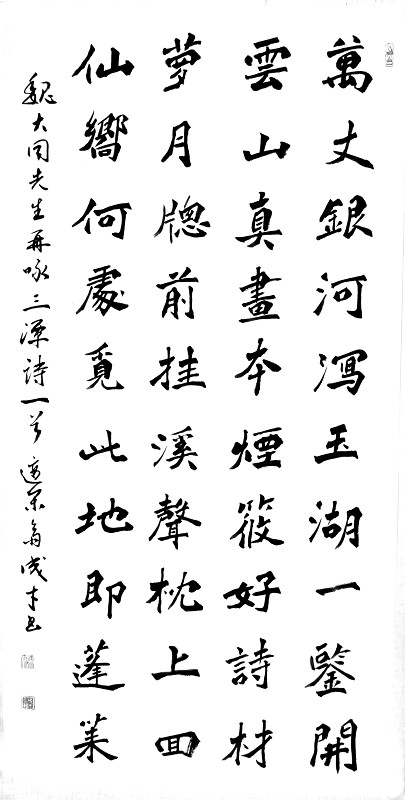 萬丈銀河瀉玉湖一鑒開
雲山真畫本煙筱好詩材
萝月牕前挂溪聲枕上回
仙嚮何處覓此地即蓬莱
魏大同先生再咏三潭詩一首 成才书